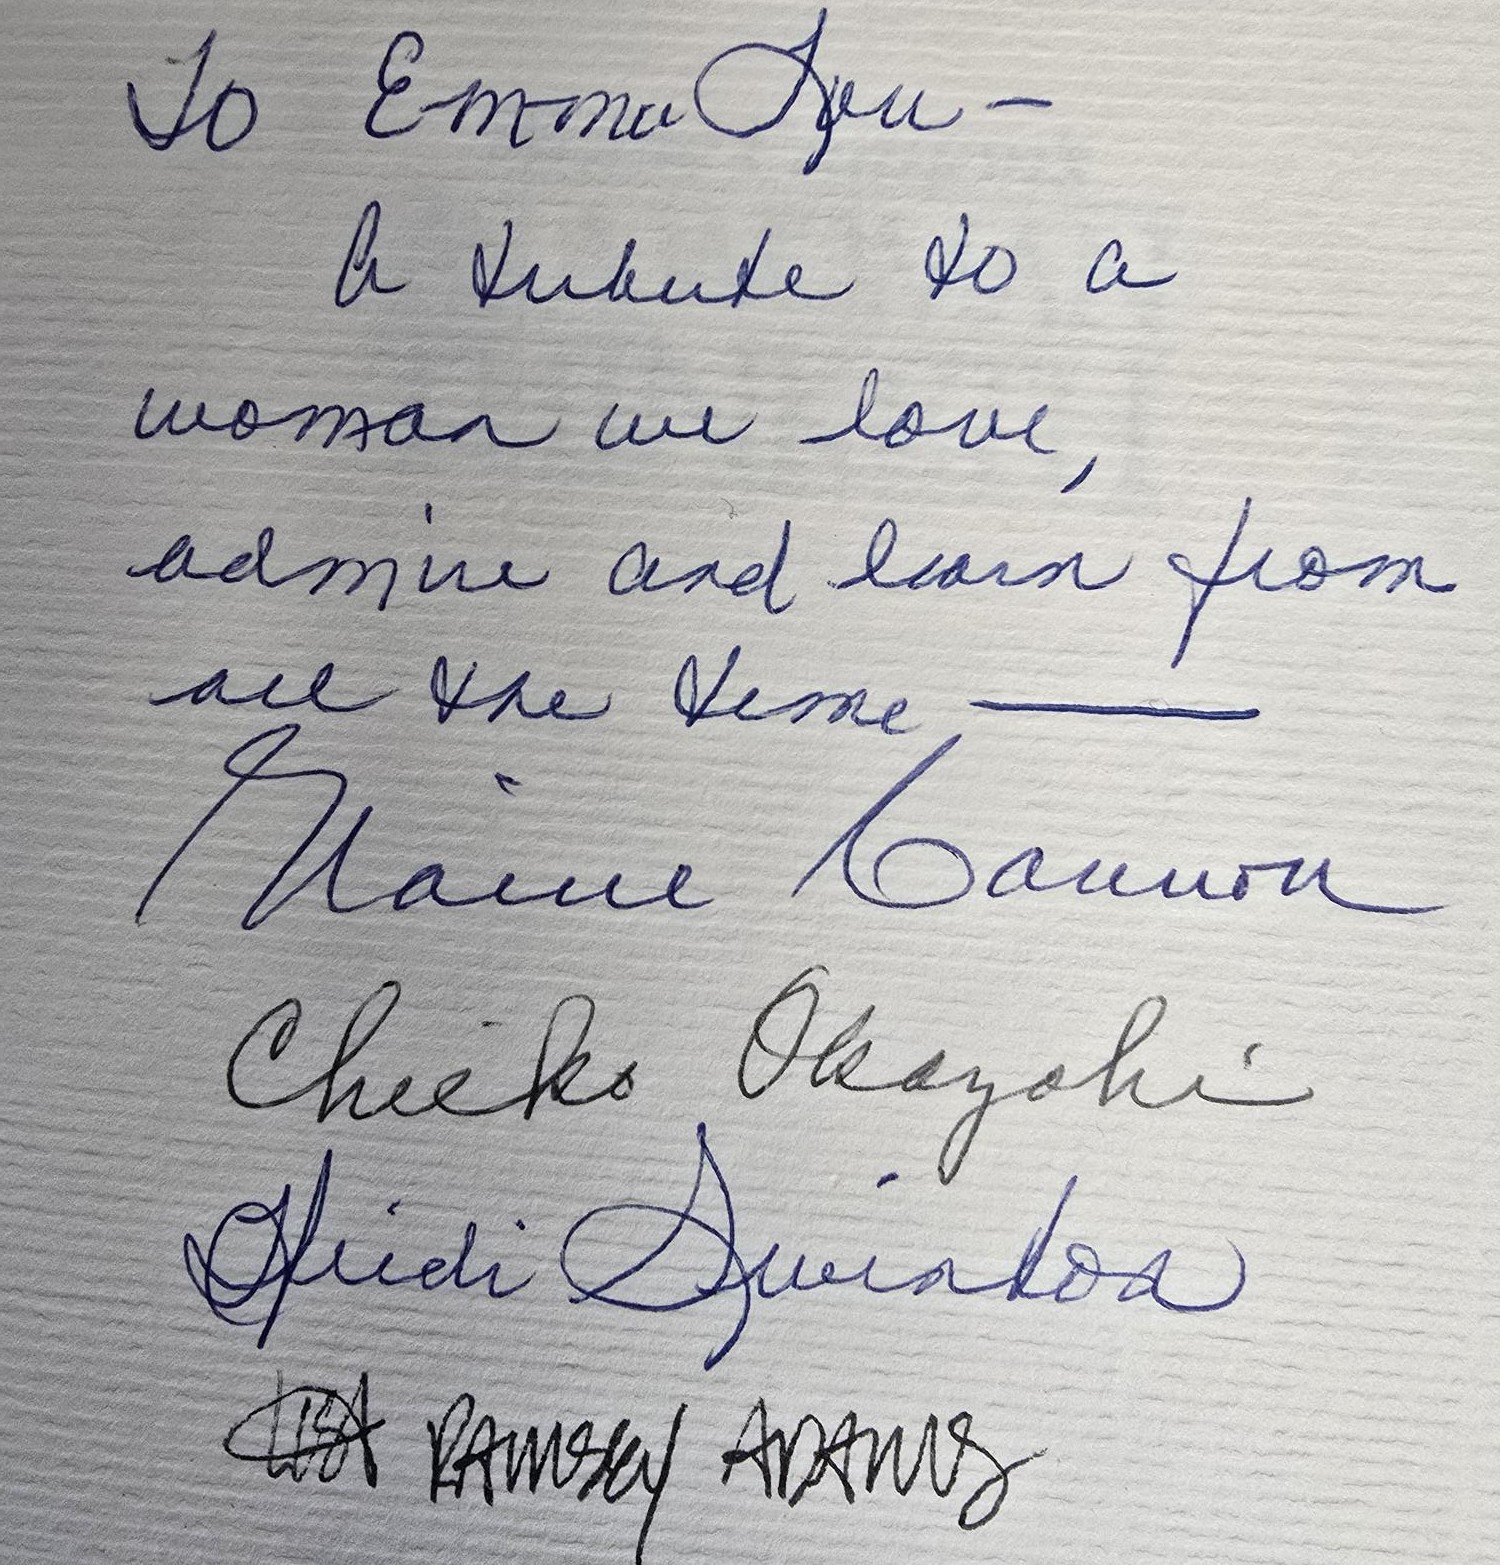 To Emma Lou —
A tribute to a
woman we love,
admire and learn from
all the time —
Elaine Cannon
Chieko Okazaki
Heidi Swinton
LISA RAMSEY ADAMS